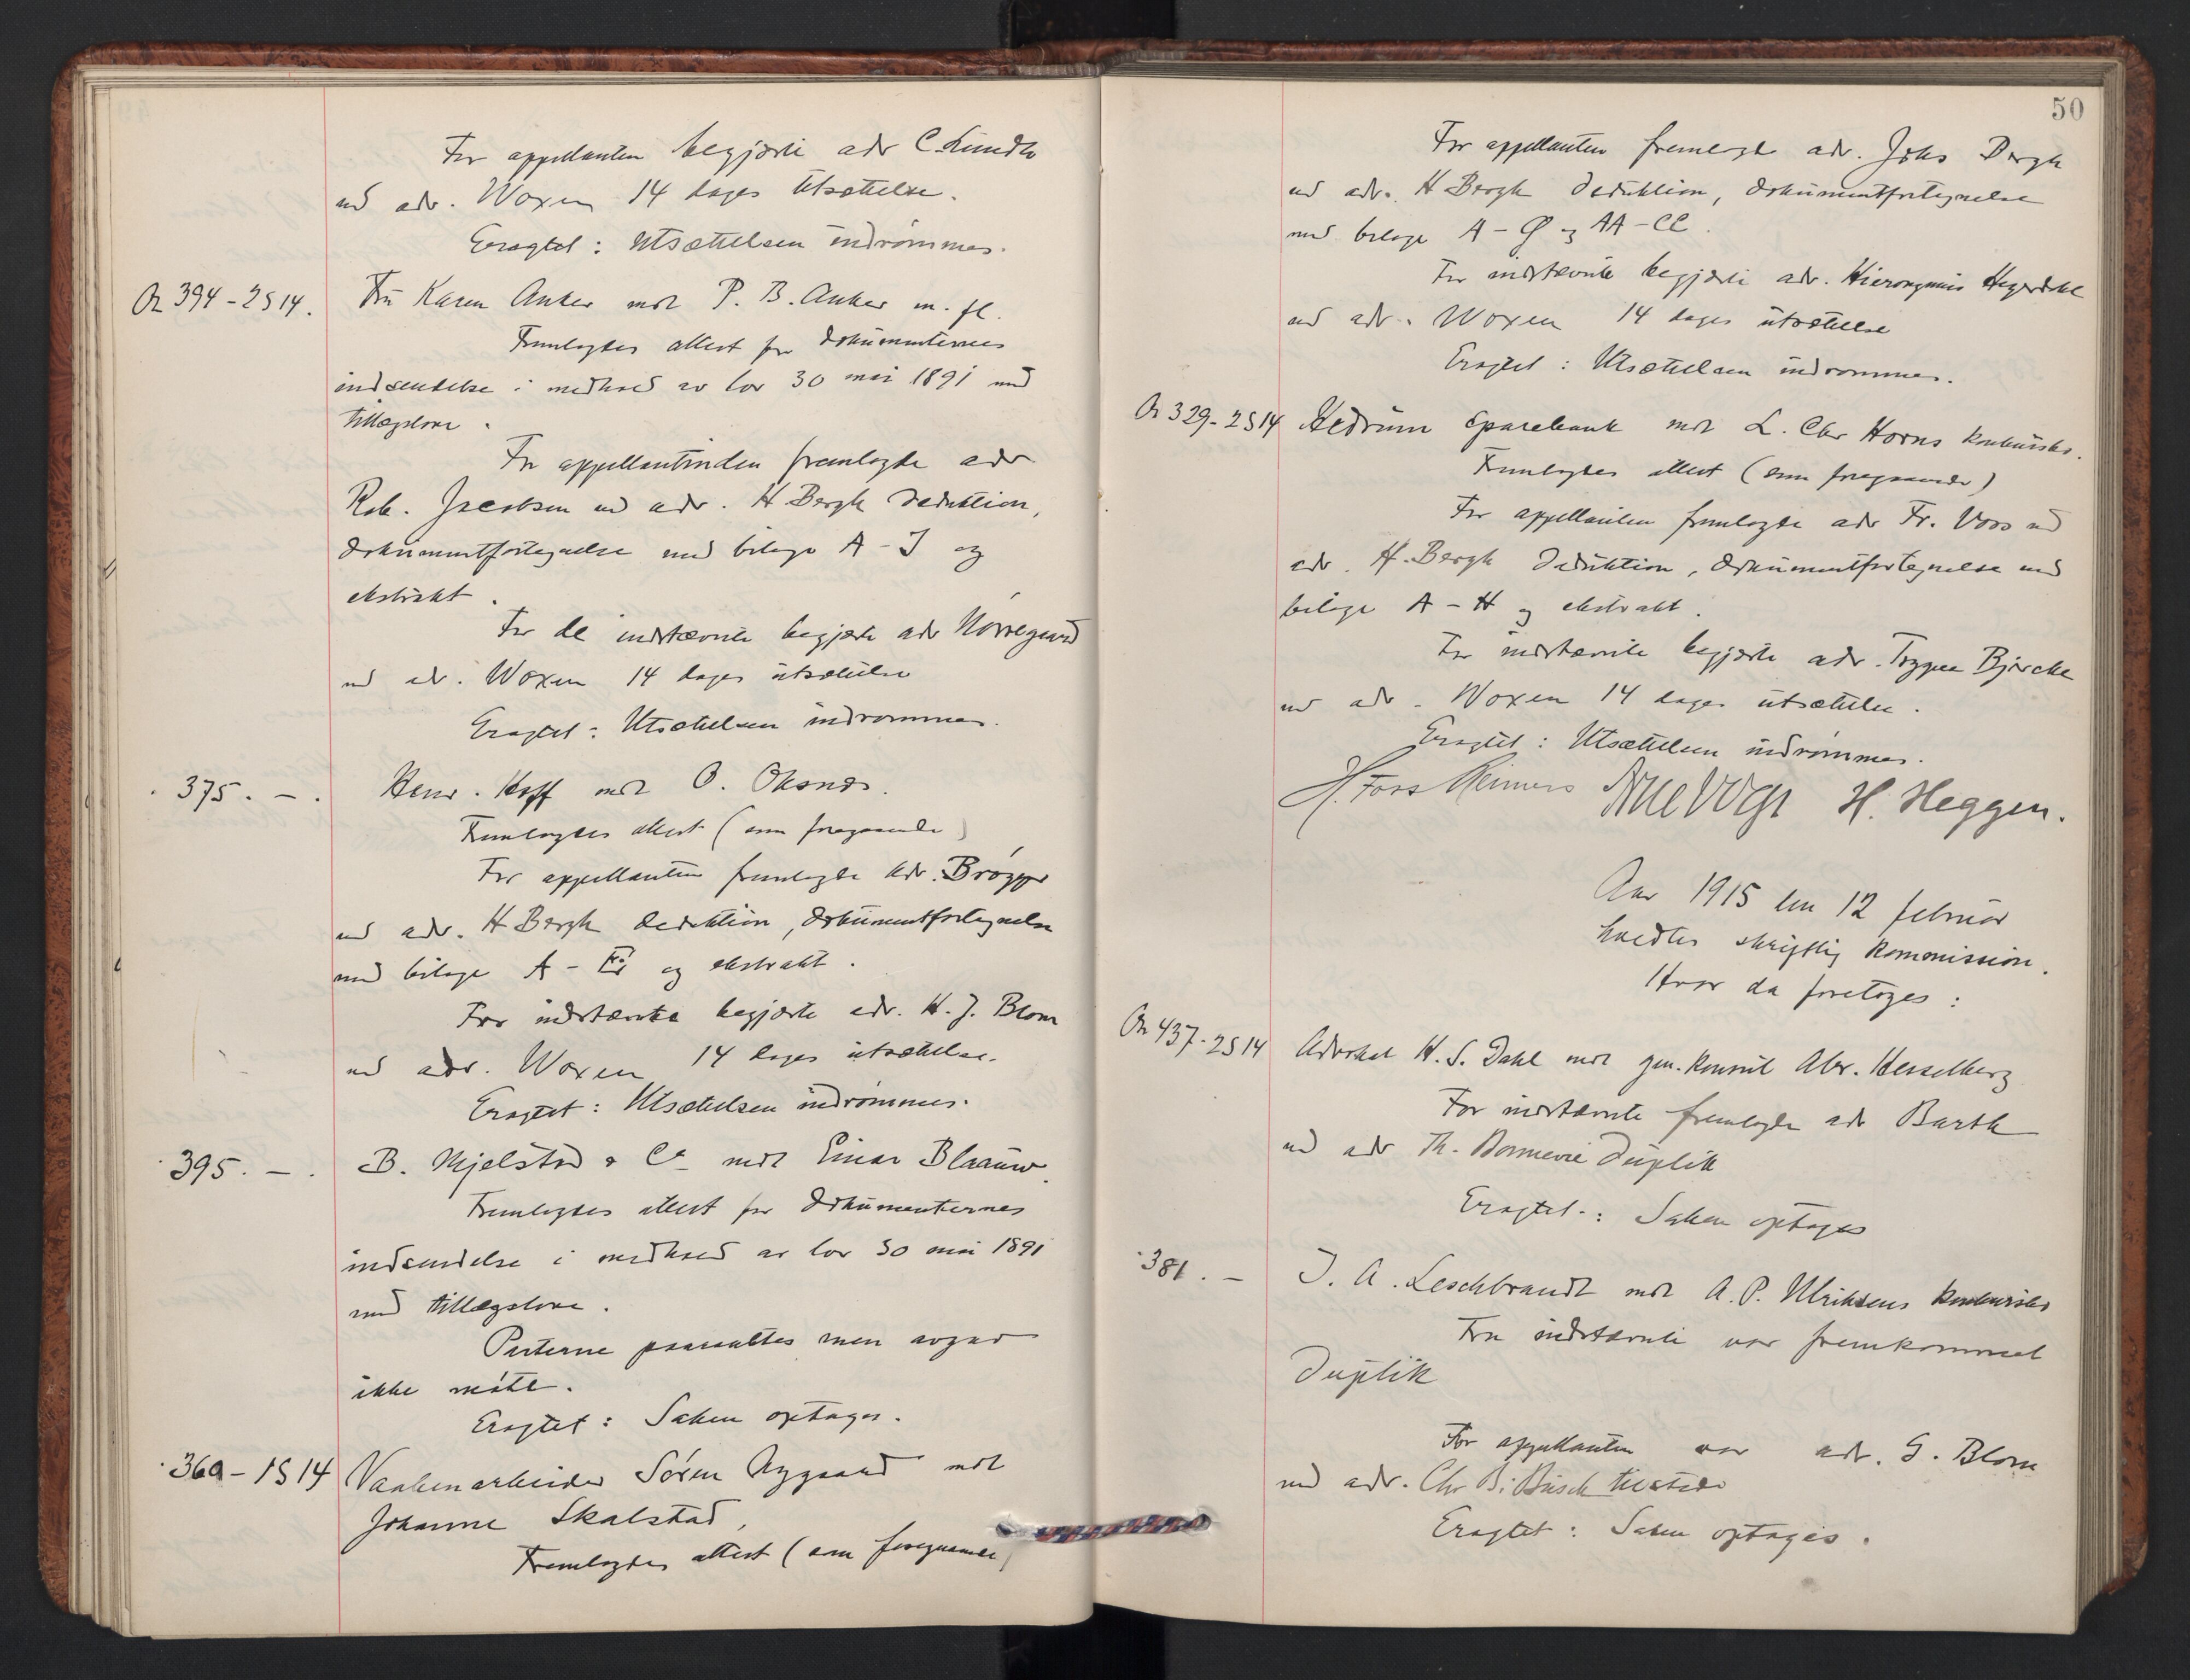 For appellanten begjærte adv C. Lundh
ved adv. Woxen 14 dages utsættelse.
Eragtet: Utsættelsen indrømmes.
Or 394-2S14. Fru Karen Anker mot P. B. Anker m. fl.
Fremlagdes attest for dokumenternes
indsendelse i medhold av lov 30 mai 1891 med
tillægslove.
For appellantinden fremlagde adv
Rob. Jacobsen ved adv. H Bergh deduktion,
dokumentfortegnelse med bilage A-J og
ekstrakt.
For de indstævnte begjærte adv Nørregaard
ved adv. Woxen 14 dages utsættelse
Eragtet: Utsættelsen indrømmes.
375. -. Henr. Hoff mot O. Oksnes.
Fremlagdes attest (som foregaaende)
For appellanten fremlagde adv. Brøgger
ved adv. H Bergh deduktion, dokumentfortegnelse
med bilage A - og ekstrakt.
For indstævnte begjærte adv. H. J. Blom
ved adv. Woxen 14 dages utsættelse.
Eragtet: Utsættelsen indrømmes.
395. -. B. Mjelstad & Co mot Einar Blaauw.
Fremlagdes attest for dokumenternes
indsendelse i medhold av lov 30 mai 1891
med tillægslove.
Parterne paaraabtes men avgav
ikke møte.
Eragtet: Saken optages.
360-1S14 Vaabenarbeider Søren Nygaard mot
Johanne Skalstad,
Fremlagdes attest (som foregaaende)
50
For appellanten fremlagde adv. Johs Bergh
ved adv. H Bergh deduktion, dokumentfortegnelse
med bilage A-Ø og AA-CC.
For indstævnte begjærte adv. Hieronymus Heyerdahl
ved adv. Woxen 14 dages utsættelse
Eragtet: Utsættelsen indrømmes.
Or 329-2S14 Hedrum Sparebank mot L. Chr Horns konkursbo.
Fremlagdes attest (som foregaaende)
For appellanten fremlagde adv Fr. Voss ved
adv. H. Bergh deduktion, dokumentfortegnelse med
bilage A-H og ekstrakt.
For indstævnte begjærte adv. Trygve Bjercke
ved adv. Woxen 14 dages utsættelse.
Eragtet: Utsættelsen indrømmes.
H. Foss Reimers Arne Vogt H. Heggen.
Aar 1915 den 12 februar
holdtes skriftlig kommission.
Hvor da foretoges:
Or 437-2S14 Advokat H. S. Dahl mot gen. konsul Abr. Hesselberg
For indstævnte fremlagde adv Barth
ved adv Th. Bonnevie duplik
Eragtet: Saken optages
381. - J. A. Leschbrandt mot A. P. Ulriksens konkursbo
Fra indstævnte var fremkommet
duplik
For appellanten var adv. G. Blom
ved adv. Chr B. Busch tilstede
Eragtet: Saken optages.